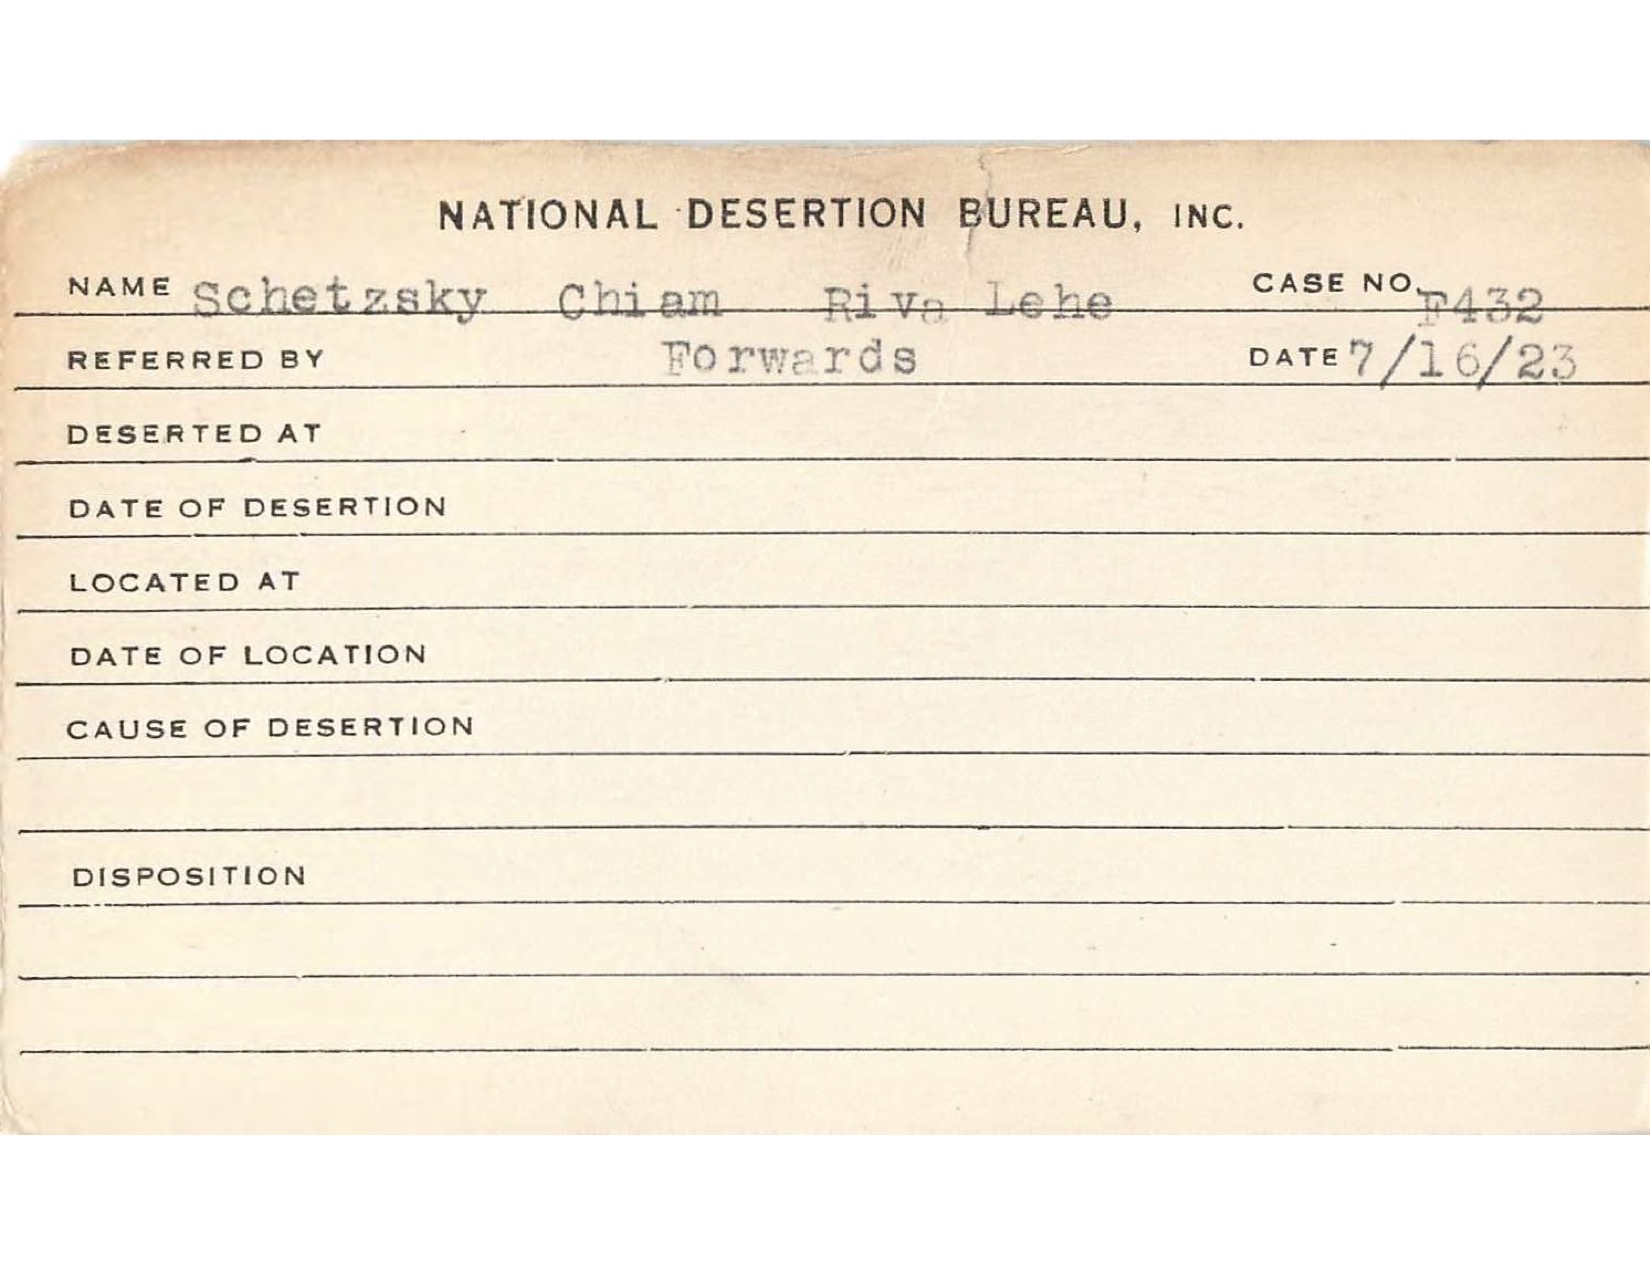 NATIONAL DESERTION BUREAU, INC.
NAME Schetzsky Chiam Riva Lehe CASE NO. F432
REFERRED BY Forwards DATE 7/16/23
DESERTED AT
DATE OF DESERTION
LOCATED AT
DATE OF LOCATION
CAUSE OF DESERTION
DISPOSITION